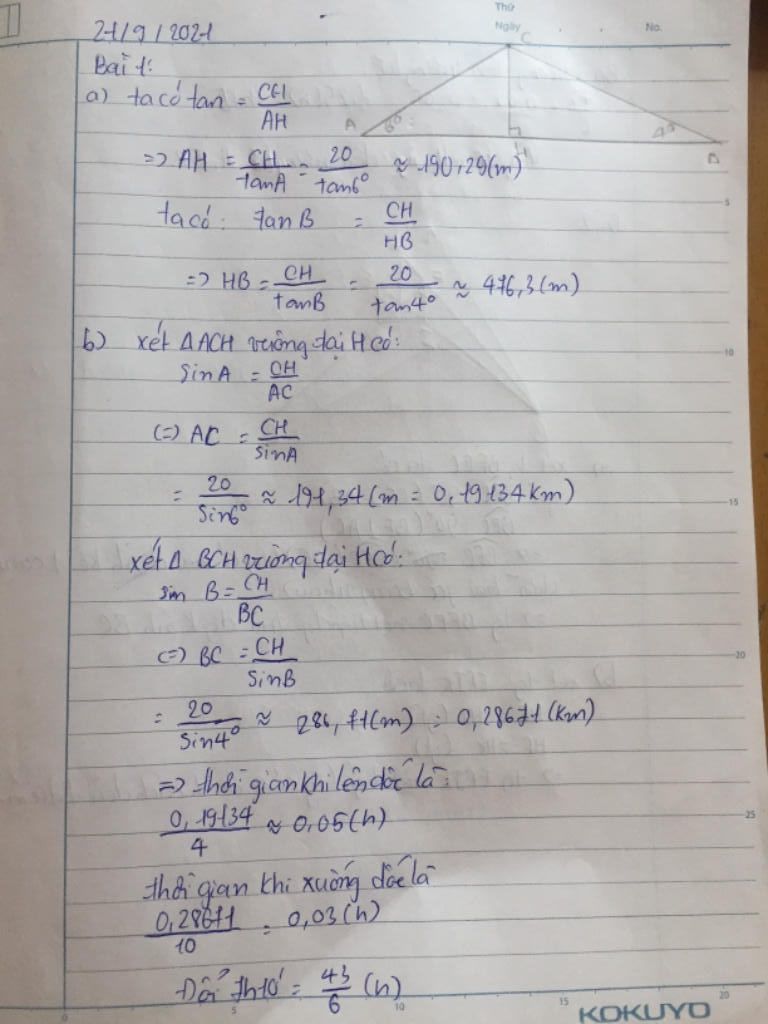 Thứ
Ngày
No.
21/9/2021
Bài 1:
a) ta có tan = CH/AH
C
A 6° H 4° B
=> AH = CH/tanA = 20/tan6° ≈ 190,29(m)
ta có: tanB = CH/HB
=> HB = CH/tanB = 20/tan4° ≈ 476,3(m)
b) xét ΔACH vuông tại H có:
sinA = CH/AC
(=) AC = CH/sinA
= 20/sin6° ≈ 191,34(m = 0,19134km)
xét Δ BCH vuông tại H có:
sin B = CH/BC
(=) BC = CH/sinB
= 20/sin4° ≈ 286,71(m) = 0,28671(km)
=> thời gian khi lên dốc là:
0,19134/4 ≈ 0,05(h)
thời gian khi xuống dốc là
0,28671/10 = 0,03(h)
Đổi = 43/6 (h)
5
10
15
20
25
0 5 10 15 20
KOKUYO